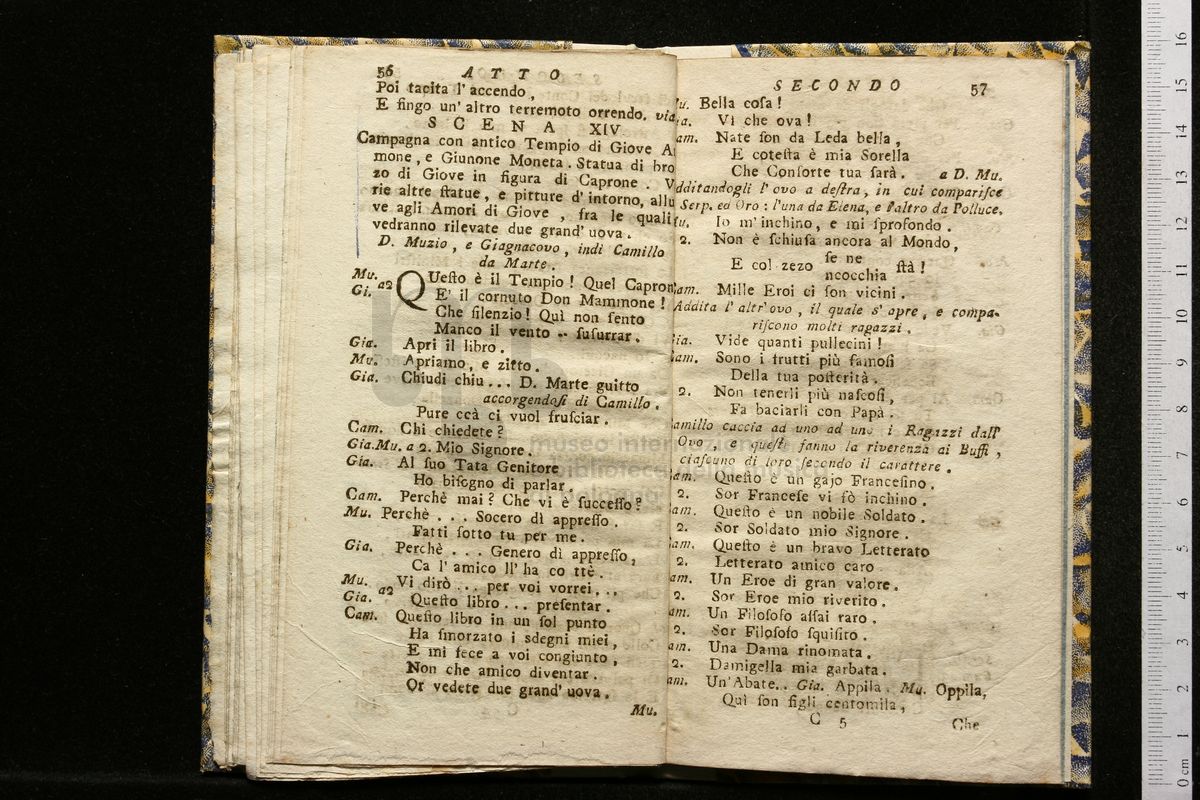 56 ATTO
Poi tacita l' accendo,
E fingo un' altro terremoto orrendo. via
SCENA XIV
Campagna con antico Tempio di Giove A
mone, e Giunone Moneta. Statua di bro
zo di Giove in figura di Caprone. V
rie altre ſtatue, e pitture d' intorno, allu
ve agli Amori di Giove, fra le quali
vedranno rilevate due grand' uova.
D. Muzio, e Giagnacovo, indi Camillo
da Marte.
Mu. Gi. a2 QUeſto è il Tempio! Quel Capron
E' il cornuto Don Mammone!
Che ſilenzio! Quì non ſento
Manco il vento .. ſuſurrar.
Gia. Apri il libro.
Mu. Apriamo, e zitto.
Gia. Chiudi chiu... D. Marte guitto
accorgendoſi di Camillo.
Pure ccà ci vuol fruſciar.
Cam. Chi chiedete?
Gia.Mu. a 2. Mio Signore.
Gia. Al ſuo Tata Genitore
Ho biſogno di parlar.
Cam. Perchè mai? Che vi è ſucceſſo?
Mu. Perchè . . . Socero dì appreſſo.
Fatti ſotto tu per me.
Gia. Perchè . . . Genero dì appreſſo,
Ca l' amico ll' ha co ttè.
Mu. Gia. a2 Vi dirò ... per voi vorrei...
Queſto libro ... preſentar.
Cam. Queſto libro in un ſol punto
Ha ſmorzato i sdegni miei,
E mi fece a voi congiunto,
Non che amico diventar.
Or vedete due grand' uova.
Mu.
SECONDO 57
u. Bella coſa!
ia. Vi che ova!
am. Nate ſon da Leda bella,
E coteſta è mia Sorella
Che Conſorte tua ſarà. a D. Mu.
dditandogli l' ovo a deſtra, in cui compariſce
Serp. ed Oro: l'una da Elena, e l'altro da Polluce.
u. Io m' inchino, e mi ſprofondo.
2. Non è ſchiuſa ancora al Mondo,
E col zezo ſe ne ncocchia ſtà!
am. Mille Eroi ci ſon vicini.
Addita l' altr' ovo, il quale s' apre, e compa-
riſcono molti ragazzi.
ia. Vide quanti pullecini!
am. Sono i frutti più famoſi
Della tua poſterità.
2. Non tenerli più naſcoſi,
Fa baciarli con Papà.
amillo caccia ad uno ad uno i Ragazzi dall'
Ovo, e queſti fanno la riverenza ai Buffi,
ciaſcuno di loro ſecondo il carattere.
am. Queſto è un gajo Franceſino.
2. Sor Franceſe vi fò inchino.
am. Queſto è un nobile Soldato.
2. Sor Soldato mio Signore.
am. Queſto è un bravo Letterato
2. Letterato amico caro
am. Un Eroe di gran valore.
2. Sor Eroe mio riverito.
am. Un Filoſofo aſſai raro.
2. Sor Filoſofo ſquiſito.
am. Una Dama rinomata.
2. Damigella mia garbata.
am. Un'Abate.. Gia. Appila. Mu. Oppila,
Quì ſon figli centomila,
C 5 Che
museo internazionale
e biblioteca della musica